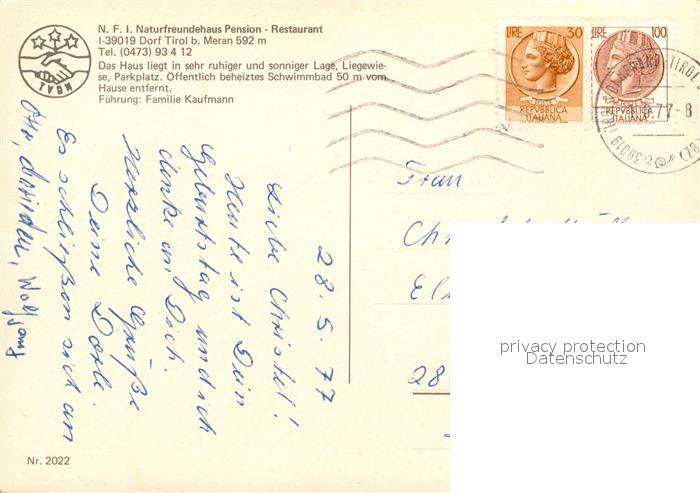 N. F. I. Naturfreundehaus Pension - Restaurant
I-39019 Dorf Tirol b. Meran 592 m
Tel. (0473) 93 4 12
Das Haus liegt in sehr ruhiger und sonniger Lage, Liegewie-
se, Parkplatz. Öffentlich beheiztes Schwimmbad 50 m vom
Hause entfernt.
Führung: Familie Kaufmann
TVDN
LIRE 30
POSTE
REPVBBLICA
ITALIANA
LIRE 100
POSTE
REPVBBLICA
ITALIANA
5.77-8
39019
(BZ)
28.5.77
Liebe Christel!
Heute ist Dein
Geburtstag und ich
denke an Dich.
Herzliche Grüße
Deine Dorle.
Es schließen sich an
Otto, Wolfgang
Frau
Ch
El
28
privacy protection
Datenschutz
Nr. 2022